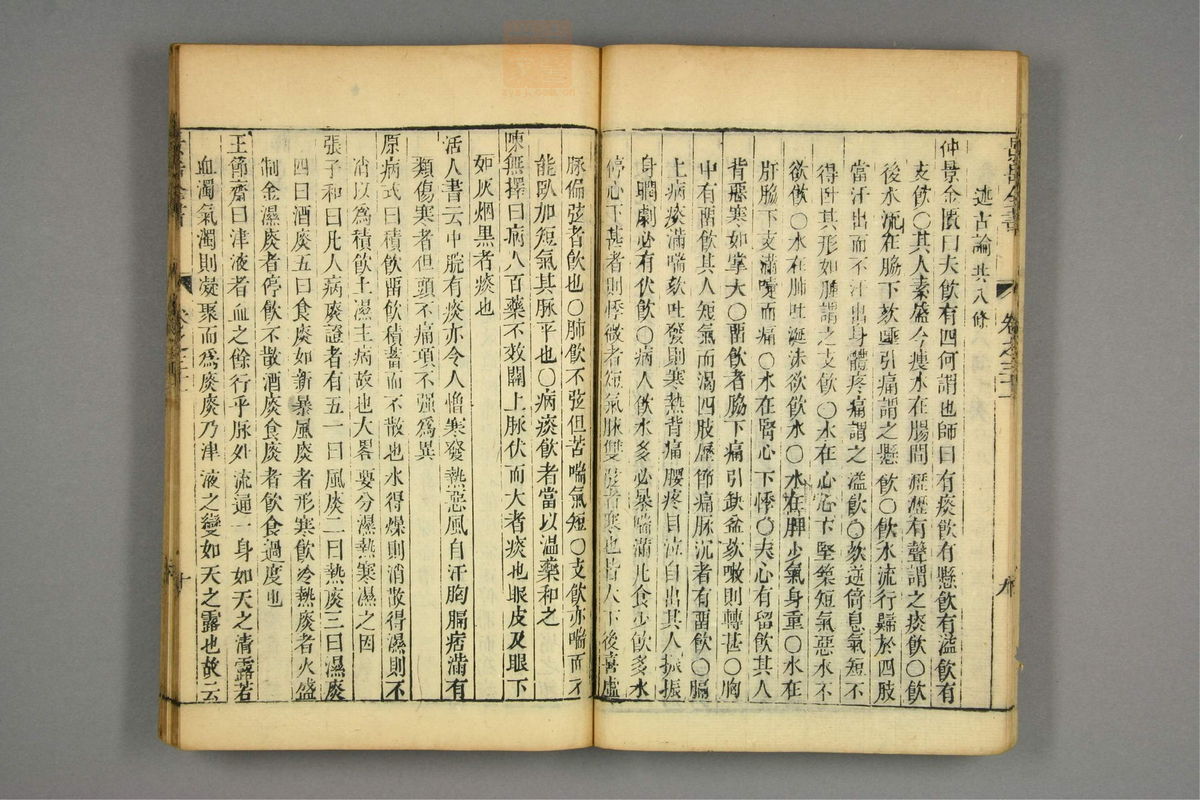 景岳全書 卷之三十一 九
述古論共八條
仲景金匱曰夫飲有四何謂也師曰有痰飲有懸飲有溢飲有
支飲〇其人素盛今瘦水在腸間瀝瀝有聲謂之痰飲〇飲
後水流在脇下欬唾引痛謂之懸飲〇飲水流行歸於四肢
當汗出而不汗出身體疼痛謂之溢飲〇欬逆倚息氣短不
得卧其形如腫謂之支飲〇水在心心下堅築短氣惡水不
欲飲〇水在肺吐涎沫欲飲水〇水在脾少氣身重〇水在
肝脇下支滿嚏而痛〇水在腎心下悸〇夫心有留飲其人
背惡寒如掌大〇畱飲者脇下痛引缺盆欬嗽則轉甚〇胸
中有畱飲其人短氣而渴四肢歷節痛脉沉者有畱飲〇膈
上病痰滿喘欬吐發則寒熱背痛腰疼目泣自出其人振振
身瞤劇必有伏飲〇病人飲水多必暴喘滿凡食少飲多水
停心下甚者則悸微者短氣脉雙弦者寒也皆大下後喜虛
脉偏弦者飲也〇肺飲不弦但苦喘氣短〇支飲亦喘而不
能臥加短氣其脉平也〇病痰飲者當以温藥和之
陳無擇曰病人百藥不效關上脉伏而大者痰也眼皮及眼下
如灰烟黑者痰也
活人書云中脘有痰亦令人憎寒發熱惡風自汗胸膈痞滿有
類傷寒者但頭不痛項不强爲異
原病式曰積飲畱飲積蓄而不散也水得燥則消散得濕則不
消以爲積飲土濕主病故也大畧要分濕熱寒濕之因
張子和曰凡人病痰證者有五一曰風痰二曰熱痰三曰濕痰
四曰酒痰五曰食痰如新暴風痰者形寒飲冷熱痰者火盛
制金濕痰者停飲不散酒痰食痰者飲食過度也
王節齋曰津液者血之餘行乎脉外流通一身如天之清露若
血濁氣濁則凝聚而爲痰痰乃津液之變如天之露也故云
十